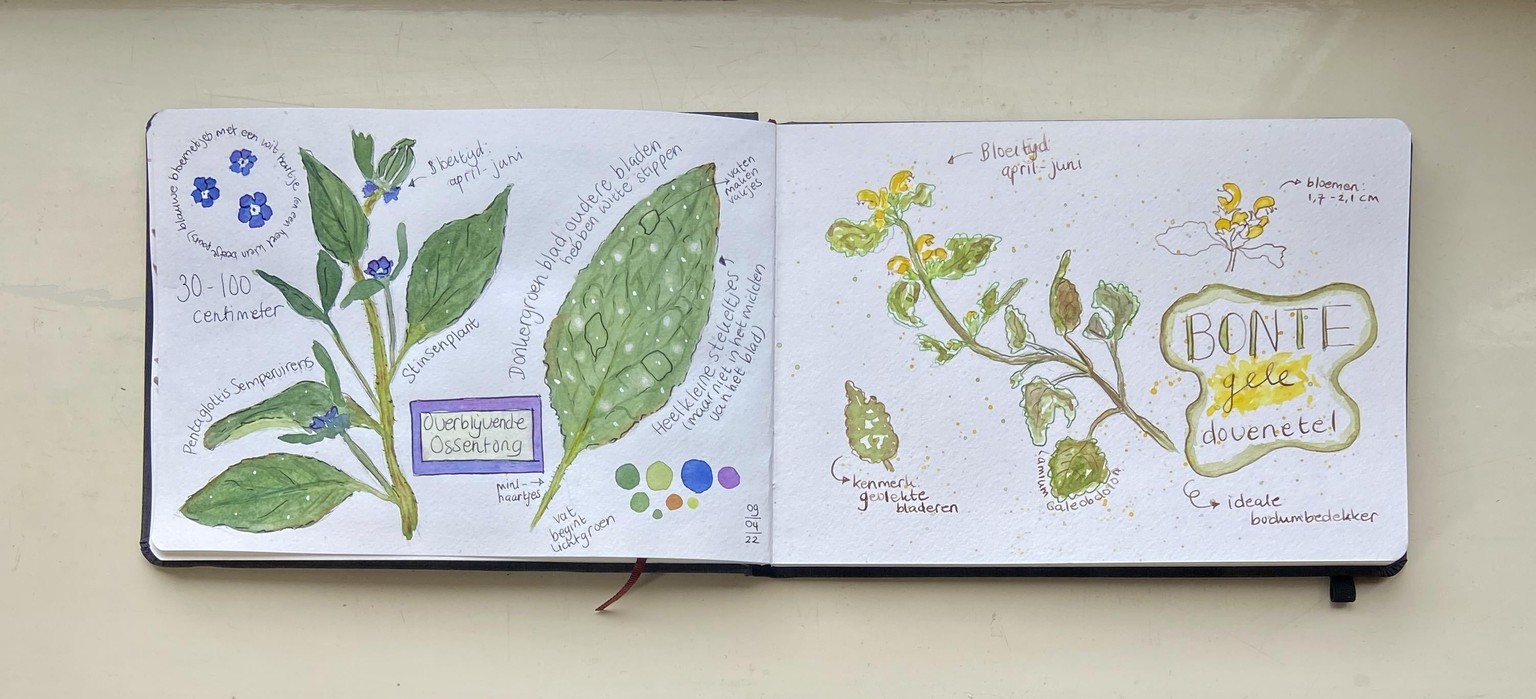 blauwe bloemetjes met een wit hartje (en een heel klein beetje paars)
Bloeitijd:
april-juni
30-100
centimeter
Pentaglottis Sempervirens
Stinsenplant
Overblijvende
Ossentong
Donkergroen blad, oudere bladen
hebben witte stippen
vaten
maken
vakjes
Heel kleine stekeltjes
(maar niet in het midden
van het blad)
mini-
haartjes
vat
begint
lichtgroen
09
04
22
Bloeitijd:
april-juni
bloemen:
1,7-2,1 cm
BONTE
gele
dovenetel
kenmerk:
gevlekte
bladeren
Lamium
Galeobdolon
ideale
bodumbedekker